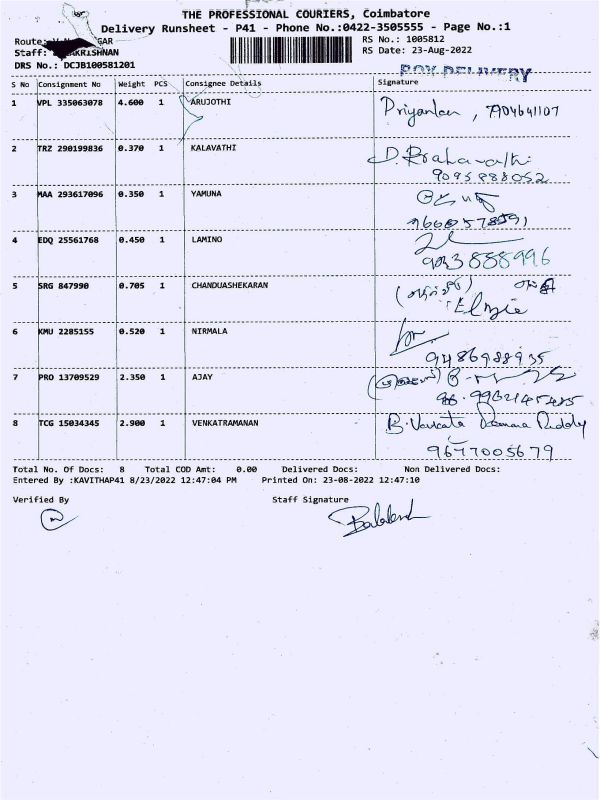 THE PROFESSIONAL COURIERS, Coimbatore
Delivery Runsheet - P41 - Phone No.:0422-3505555 - Page No.:1
Route: GAR RS No.: 1005812
Staff: AKRISHNAN RS Date: 23-Aug-2022
DRS No.: DCJB100581201
BOX DELIVERY
S No Consignment No Weight PCS Consignee Details Signature
1 VPL 335063078 4.600 1 ARUJOTHI Priyanka, 7904641107
2 TRZ 290199836 0.370 1 KALAVATHI D. Prabavathi
9095888052
3 MAA 293617096 0.350 1 YAMUNA
4 EDQ 25561768 0.450 1 LAMINO
9043888996
5 SRG 847990 0.705 1 CHANDUASHEKARAN
6 KMU 2285155 0.520 1 NIRMALA
9486988935
7 PRO 13709529 2.350 1 AJAY
8 TCG 15034345 2.900 1 VENKATRAMANAN B. Vankata Ramana Reddy
9677005679
Total No. Of Docs: 8 Total COD Amt: 0.00 Delivered Docs: Non Delivered Docs:
Entered By :KAVITHAP41 8/23/2022 12:47:04 PM Printed On: 23-08-2022 12:47:10
Verified By Staff Signature